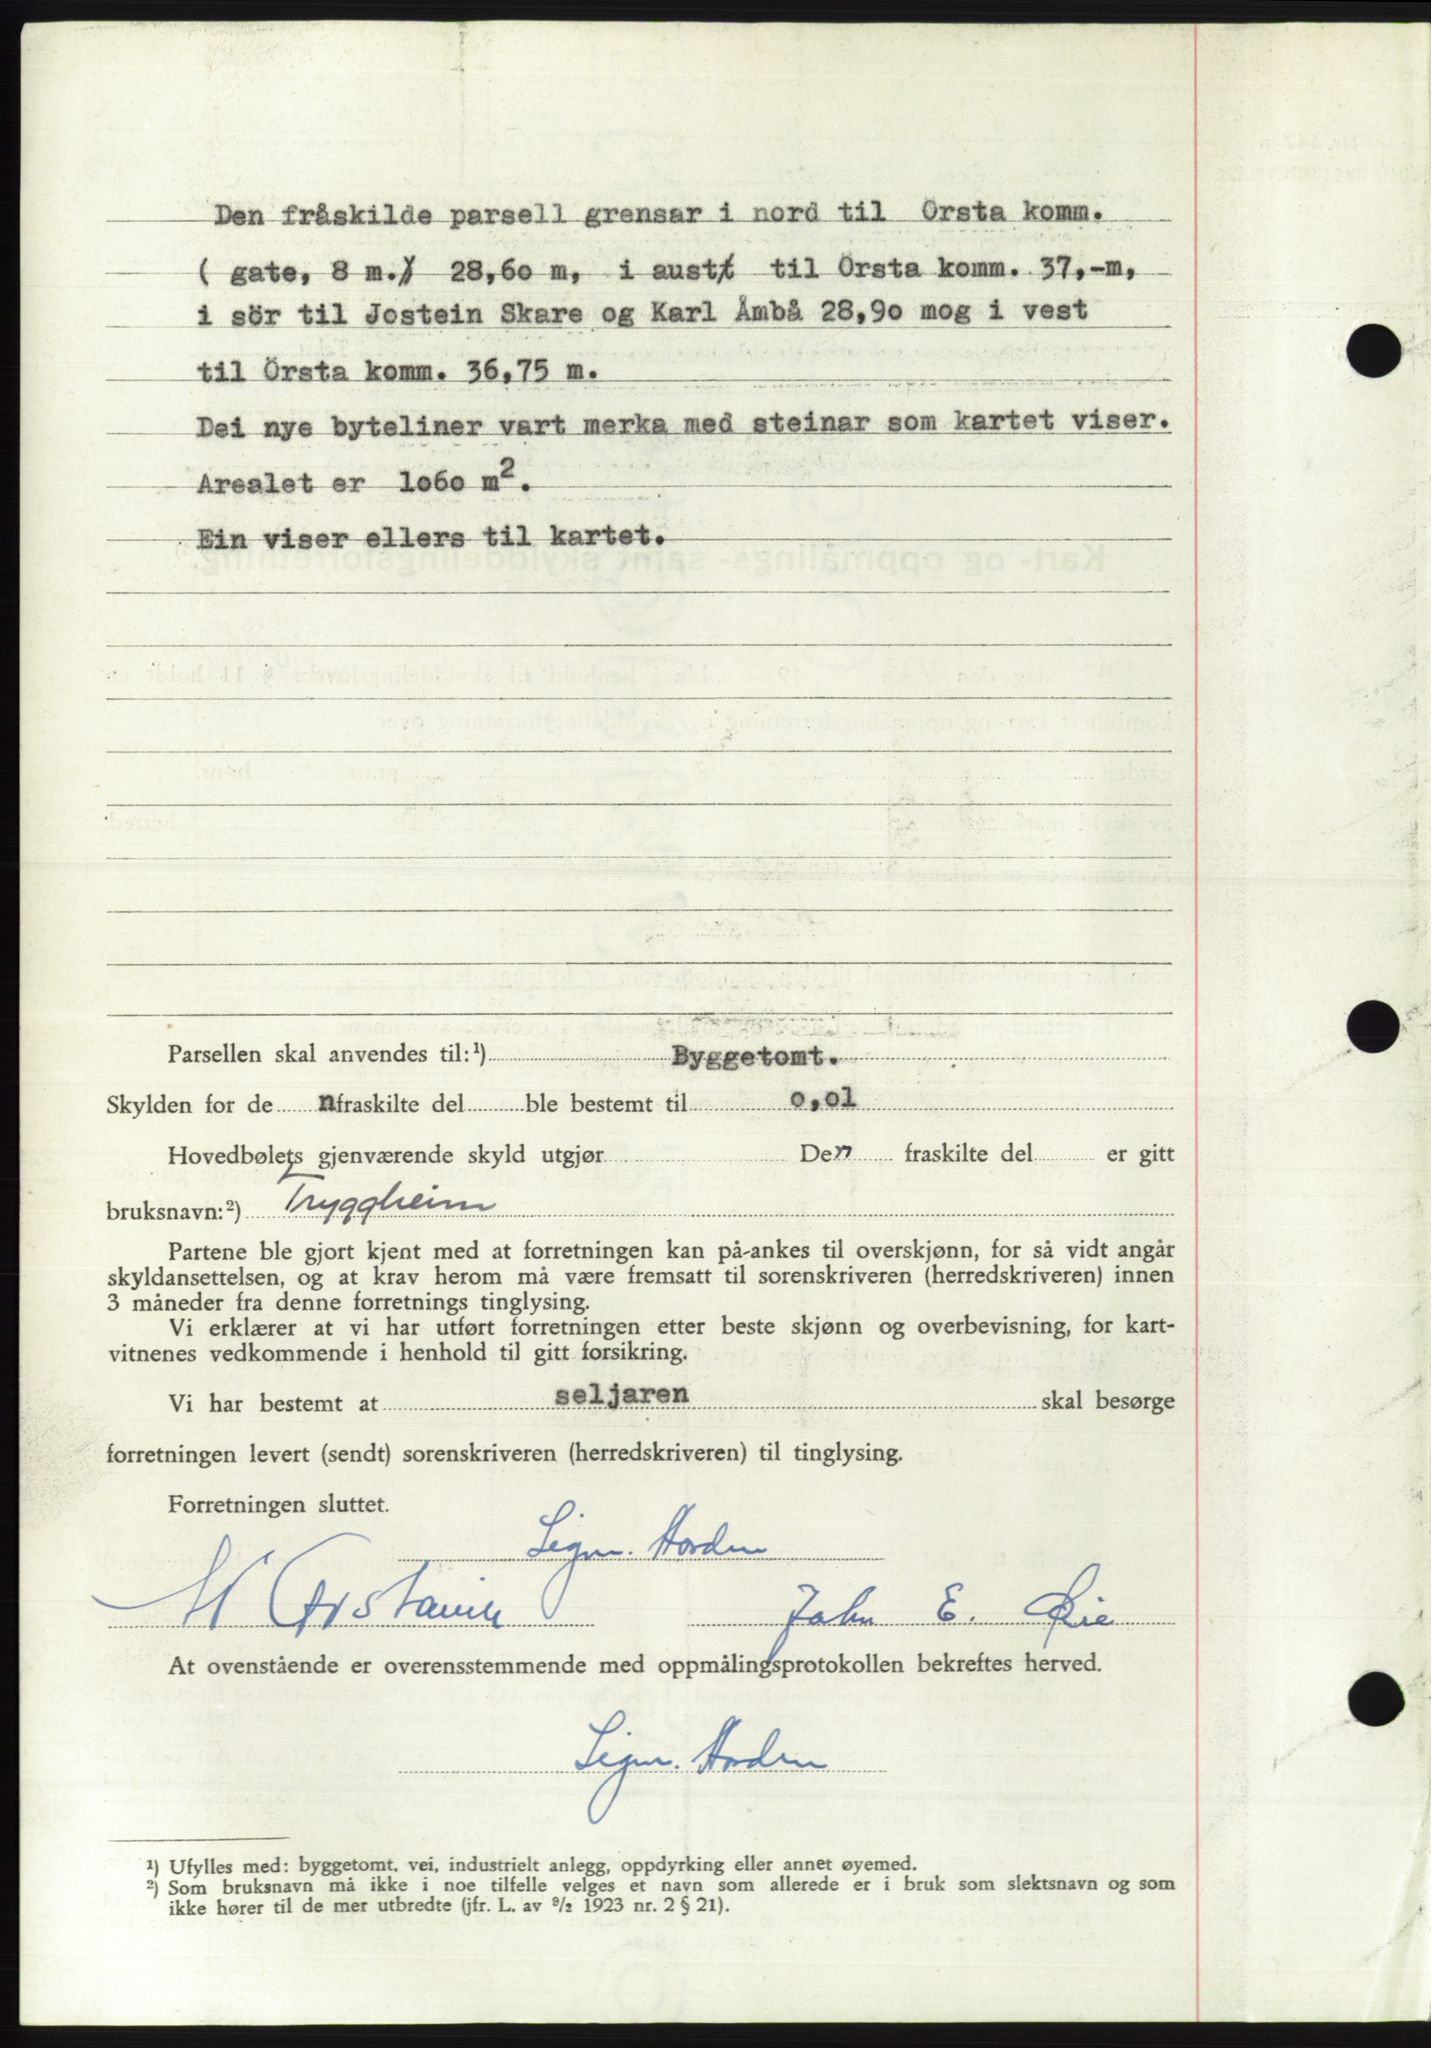 Den fråskilde parsell grensar i nord til Örsta komm.
( gate, 8 m.) 28,60 m, i aust til Örsta komm. 37,-m,
i sör til Jostein Skare og Karl Åmbå 28,90 mog i vest
til Örsta komm. 36,75 m.
Dei nye byteliner vart merka med steinar som kartet viser.
Arealet er 1060 m².
Ein viser ellers til kartet.
Parsellen skal anvendes til:¹) Byggetomt.
Skylden for de n fraskilte del ble bestemt til 0,01
Hovedbølets gjenværende skyld utgjør Den fraskilte del er gitt
bruksnavn:²) Tryggheim
Partene ble gjort kjent med at forretningen kan på-ankes til overskjønn, for så vidt angår
skyldansettelsen, og at krav herom må være fremsatt til sorenskriveren (herredskriveren) innen
3 måneder fra denne forretnings tinglysing.
Vi erklærer at vi har utført forretningen etter beste skjønn og overbevisning, for kart-
vitnenes vedkommende i henhold til gitt forsikring.
Vi har bestemt at seljaren skal besørge
forretningen levert (sendt) sorenskriveren (herredskriveren) til tinglysing.
Forretningen sluttet.
Sigm. Hovden
John E. Øie
At ovenstående er overensstemmende med oppmålingsprotokollen bekreftes herved.
Sigm. Hovden
¹) Ufylles med: byggetomt, vei, industrielt anlegg, oppdyrking eller annet øyemed.
²) Som bruksnavn må ikke i noe tilfelle velges et navn som allerede er i bruk som slektsnavn og som
ikke hører til de mer utbredte (jfr. L. av ⁹/₂ 1923 nr. 2 § 21).